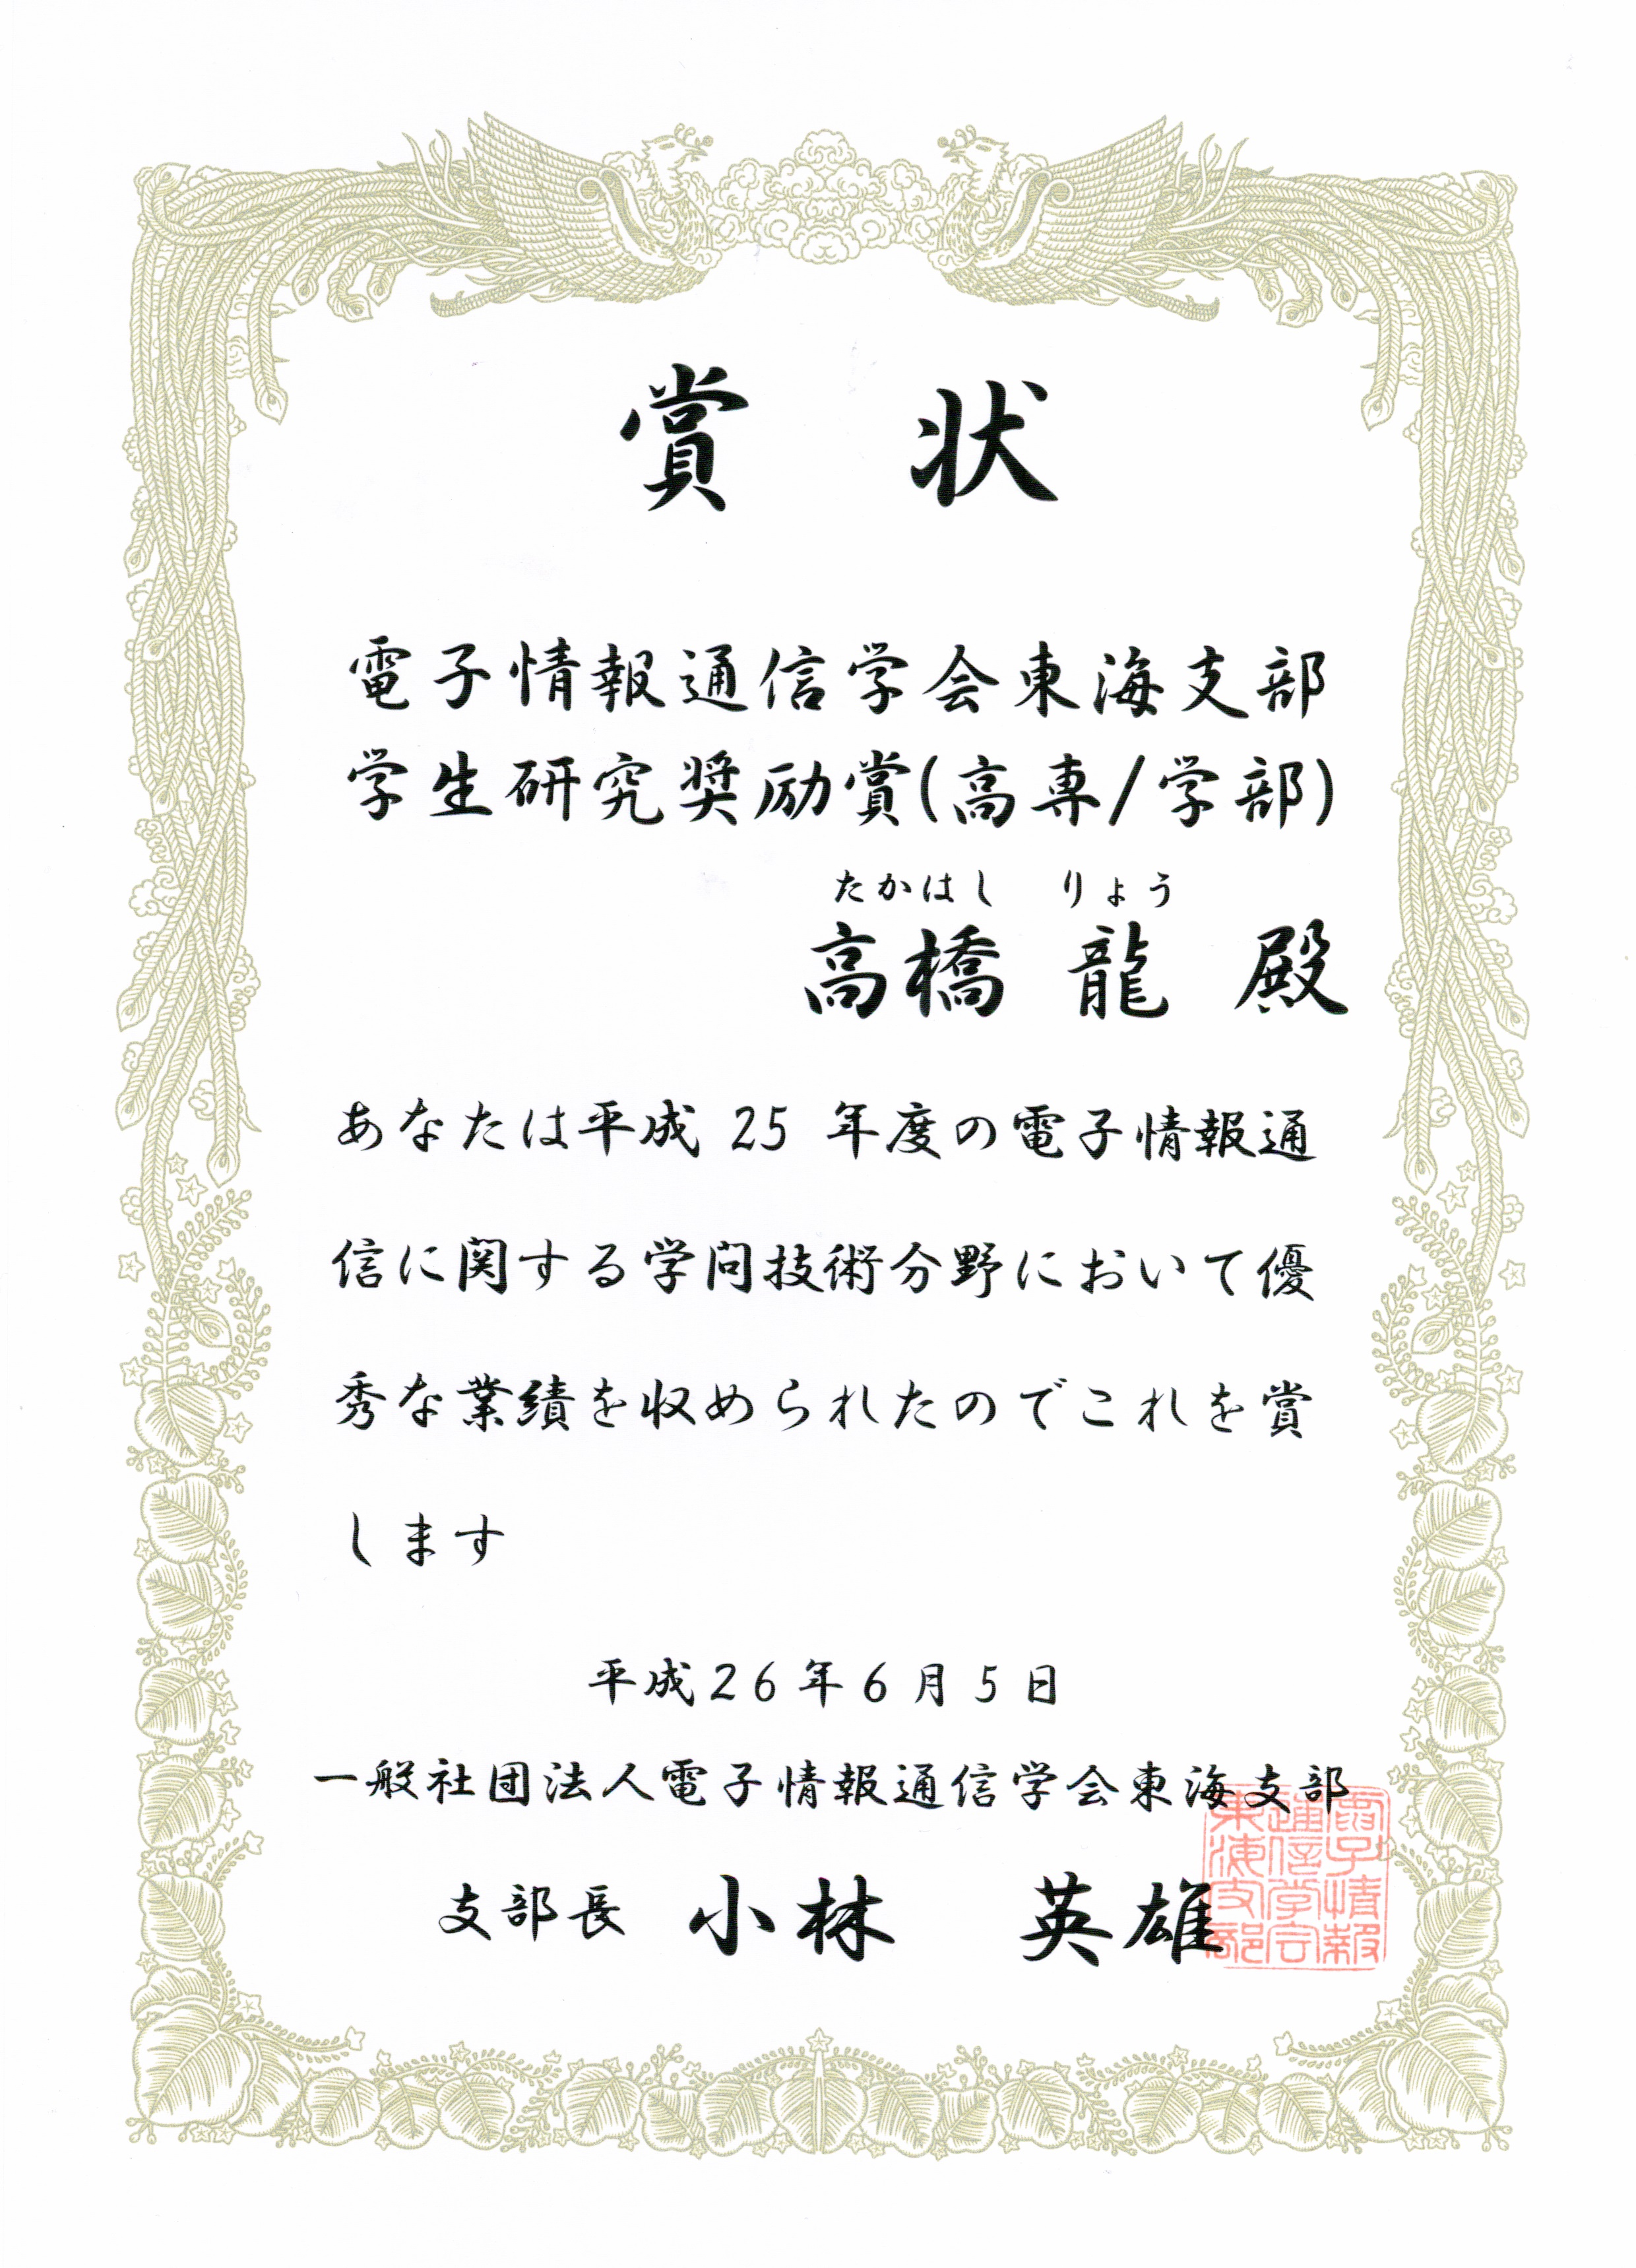 賞 状
電子情報通信学会東海支部
学生研究奨励賞(高専/学部)
たかはし りょう
高橋 龍 殿
あなたは平成 25 年度の電子情報通
信に関する学問技術分野において優
秀な業績を収められたのでこれを賞
します
平成26年6月5日
一般社団法人電子情報通信学会東海支部
支部長 小林 英雄
電子情報
通信学会
東海支部